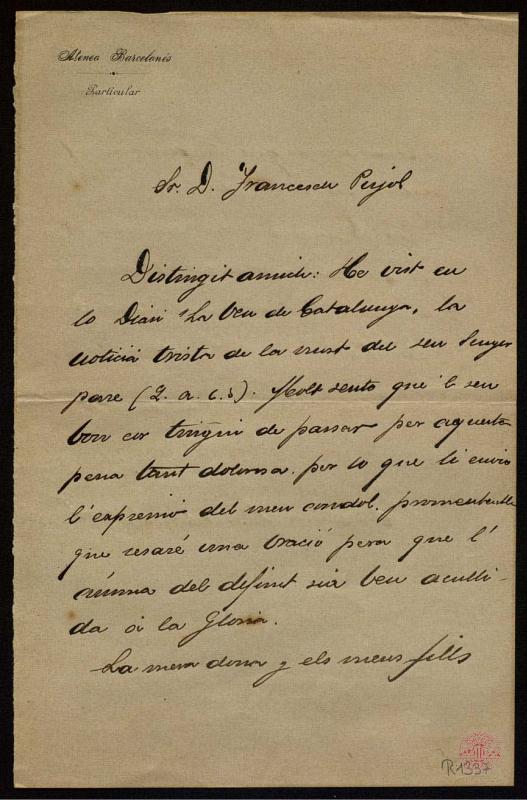 Ateneo Barcelonés
Particular
Sr. D. Francesch Pujol
Distingit amich: He vist en
lo Diari "La Veu de Catalunya, la
noticia trista de la mort del seu Senyor
pare (Q. a. c. s). Molt sento que 'l seu
bon cor tingui de passar per aquesta
pena tant dolorosa. per lo que li envio
l' expressió del meu condol. prometentli
que resaré una oració pera que l'
ánima del difunt sia ben aculli-
da á la Gloria.
La meva dona y els meus fills
R.1337